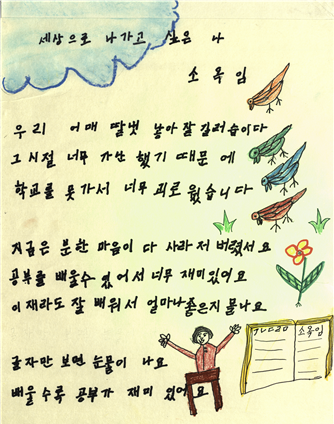 세상으로 나가고 싶은 나
소옥임
우리 어매 딸넷 낳아 잘 길러습이다
그 시절 너무 가산 했기 때문 에
학교를 못가서 너무 괴로 웠습니다
지금은 분한 마음이 다 사라저 버렸서요
공부를 배울수 있어서 너무 재미있어요
이재라도 잘 배워서 얼마나 좋은지 몰나요
글자만 보면 눈물이 나요
배울수록 공부가 재미 있어요
ㄱㄴㄷㄹㅁ 소옥임